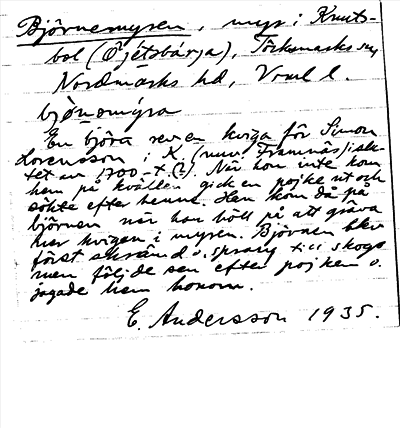 Björnemyren, myr i Knuts-
bol (Öjétsbárja), Töcksmarks sn,
Nordmarks hd, Vrml l.
bjònomýra
En björn rev en kviga för Simon
Lorensson i K. (nuv. Framnäs) i slu-
tet av 1700-t. (?). När hon inte kom
hem på kvällen gick en pojke ut och
sökte efter henne. Han kom då på
björnen när han höll på att gräva
ner kvigan i myren. Björnen blev
först skrämd o. sprang till skogs
men följde sen efter pojken o.
jagade hem honom.
E. Andersson 1935.